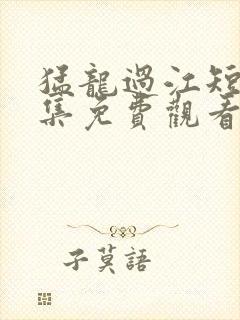 猛龍過江短
集免費觀看
子莫語